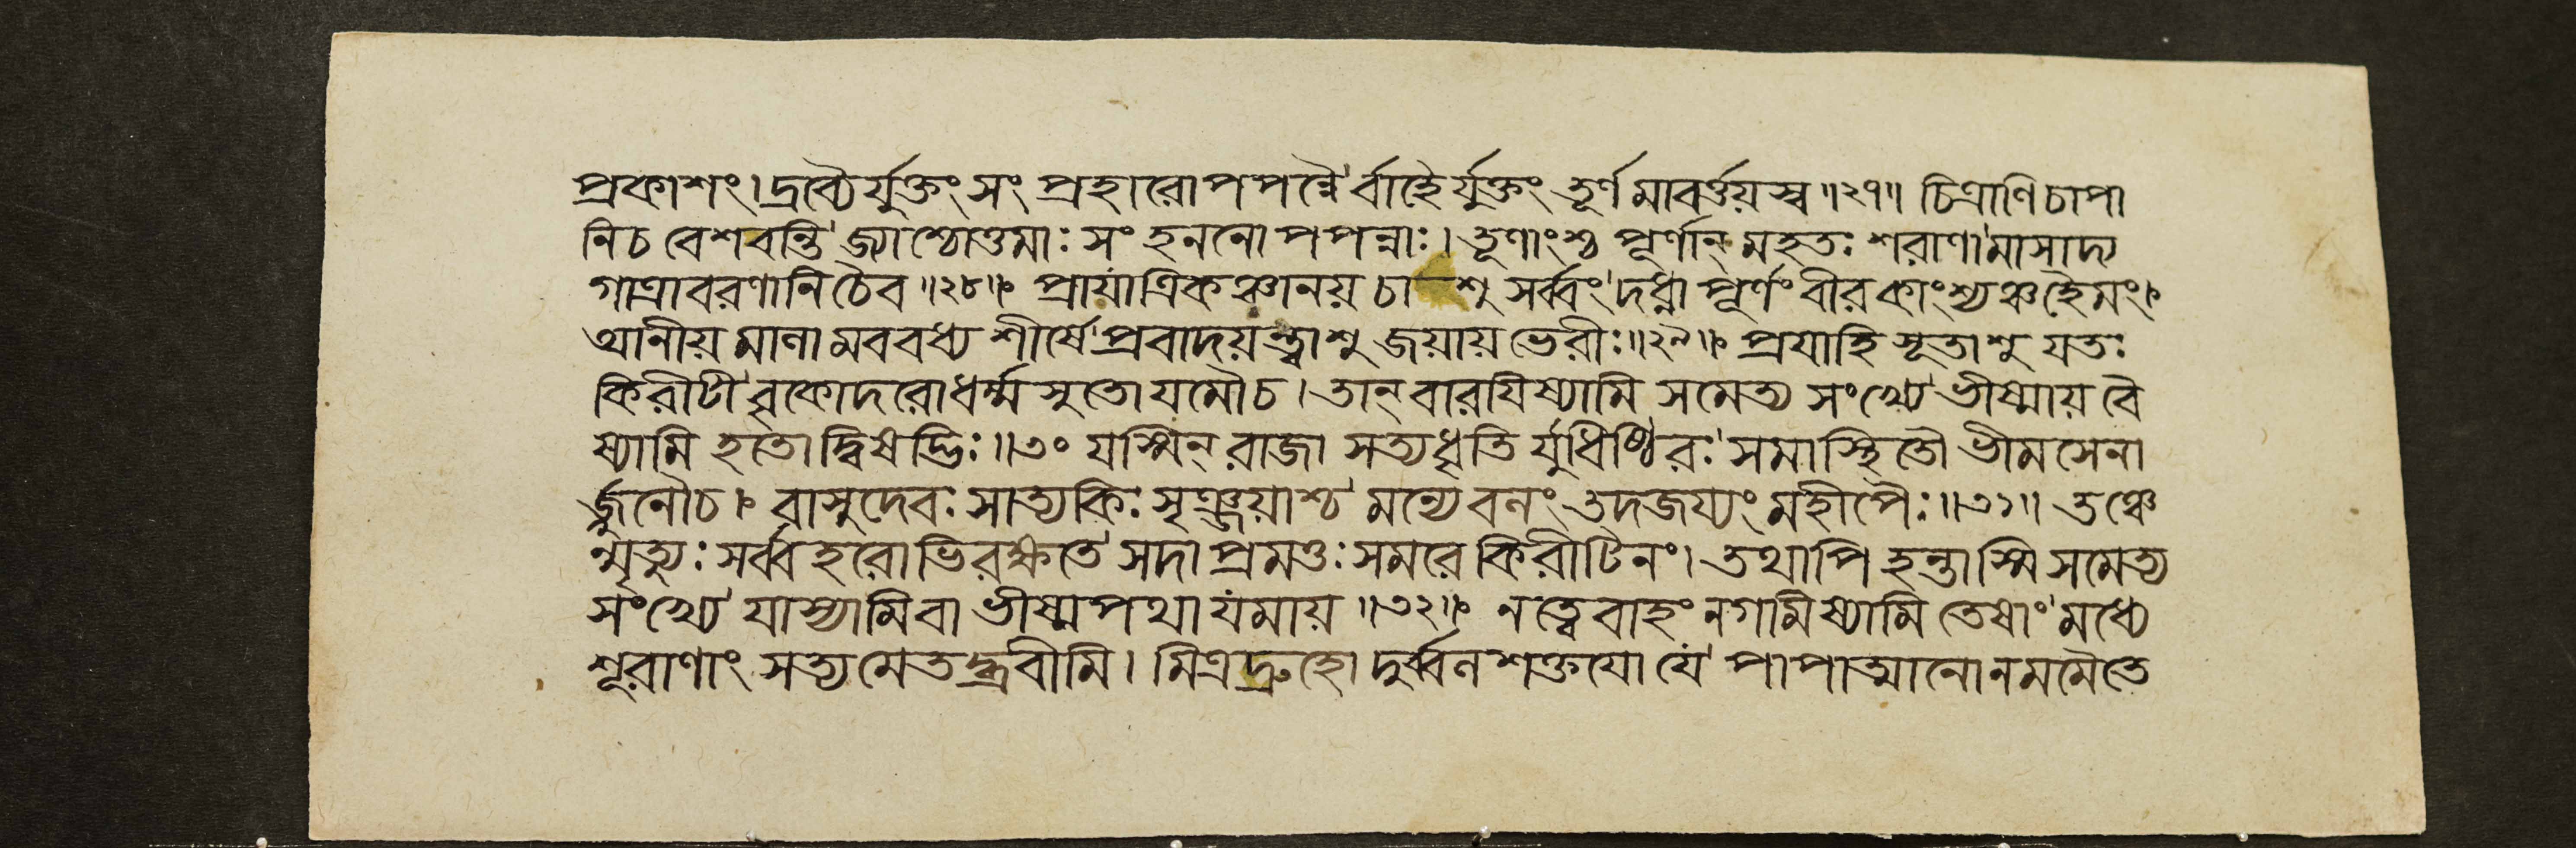 প্রকাশং। দ্রব্যৈর্যুক্তং সং প্রহারোপপন্নৈর্বাহৈর্যুক্তং তূর্ণমাবর্ত্তয়স্ব ॥২৭॥ চিত্রাণি চাপা
নি চ বেগবন্তি জ্যাশ্চোত্তমাঃ সংহননোপপন্নাঃ। তূণাংশ্চ পূর্ণান্ মহতঃ শরাণামাসাদ্য
গাত্রাবরণানি চৈব ॥২৮॥ প্রাযাত্রিকঞ্চানয় চাশু সর্ব্বং দধ্না পূর্ণং বীর কাংশ্যঞ্চ হৈমং।
আনীয় মালামববধ্য শীর্ষে প্রবাদয়ন্ত্বাশু জয়ায় ভেরীঃ॥২৯॥ প্রযাহি সূতাশু যতঃ
কিরীটী বৃকোদরো ধর্ম্মসুতো যমৌ চ। তান্ বারযিষ্যামি সমেত্য সংখ্যে ভীষ্মায় বৈ
ষ্যামি হতো দ্বিষদ্ভিঃ॥৩০ যস্মিন্ রাজা সত্যধৃতির্যুধিষ্ঠিরঃ সমাস্থিতৌ ভীমসেনা
র্জ্জুনৌ চ। বাসুদেবঃ সাত্যকিঃ সৃঞ্জয়াশ্চ মন্যে বলং তদজয্যং মহীপৈঃ॥৩১॥ তঞ্চে
ন্মৃত্যুঃ সর্ব্বহরোভিরক্ষতে সদা প্রমত্তঃ সমরে কিরীটিনং। তথাপি হন্তাস্মি সমেত্য
সংখ্যে যাস্যামি বা ভীষ্মপথা যমায় ॥৩২॥ ন ত্বেবাহং ন গামিষ্যামি তেষাং মধ্যে
শূরাণাং সত্যমেতদ্ব্রবীমি। মিত্রদ্রুহো দুর্ব্বলশক্তযো যে পাপাত্মানো ন মমৈতে